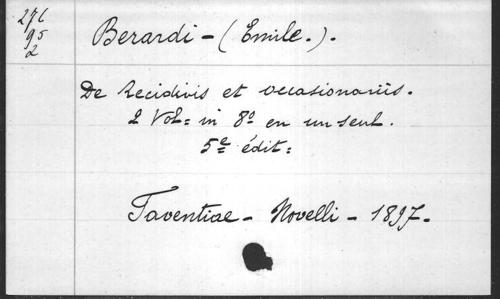 276
95
2
Berardi - (Emile.).
De Recidivis et occasionariis.
2 Vol: in 8º en un seul.
5e édit:
Faventiae - Novelli - 1897.